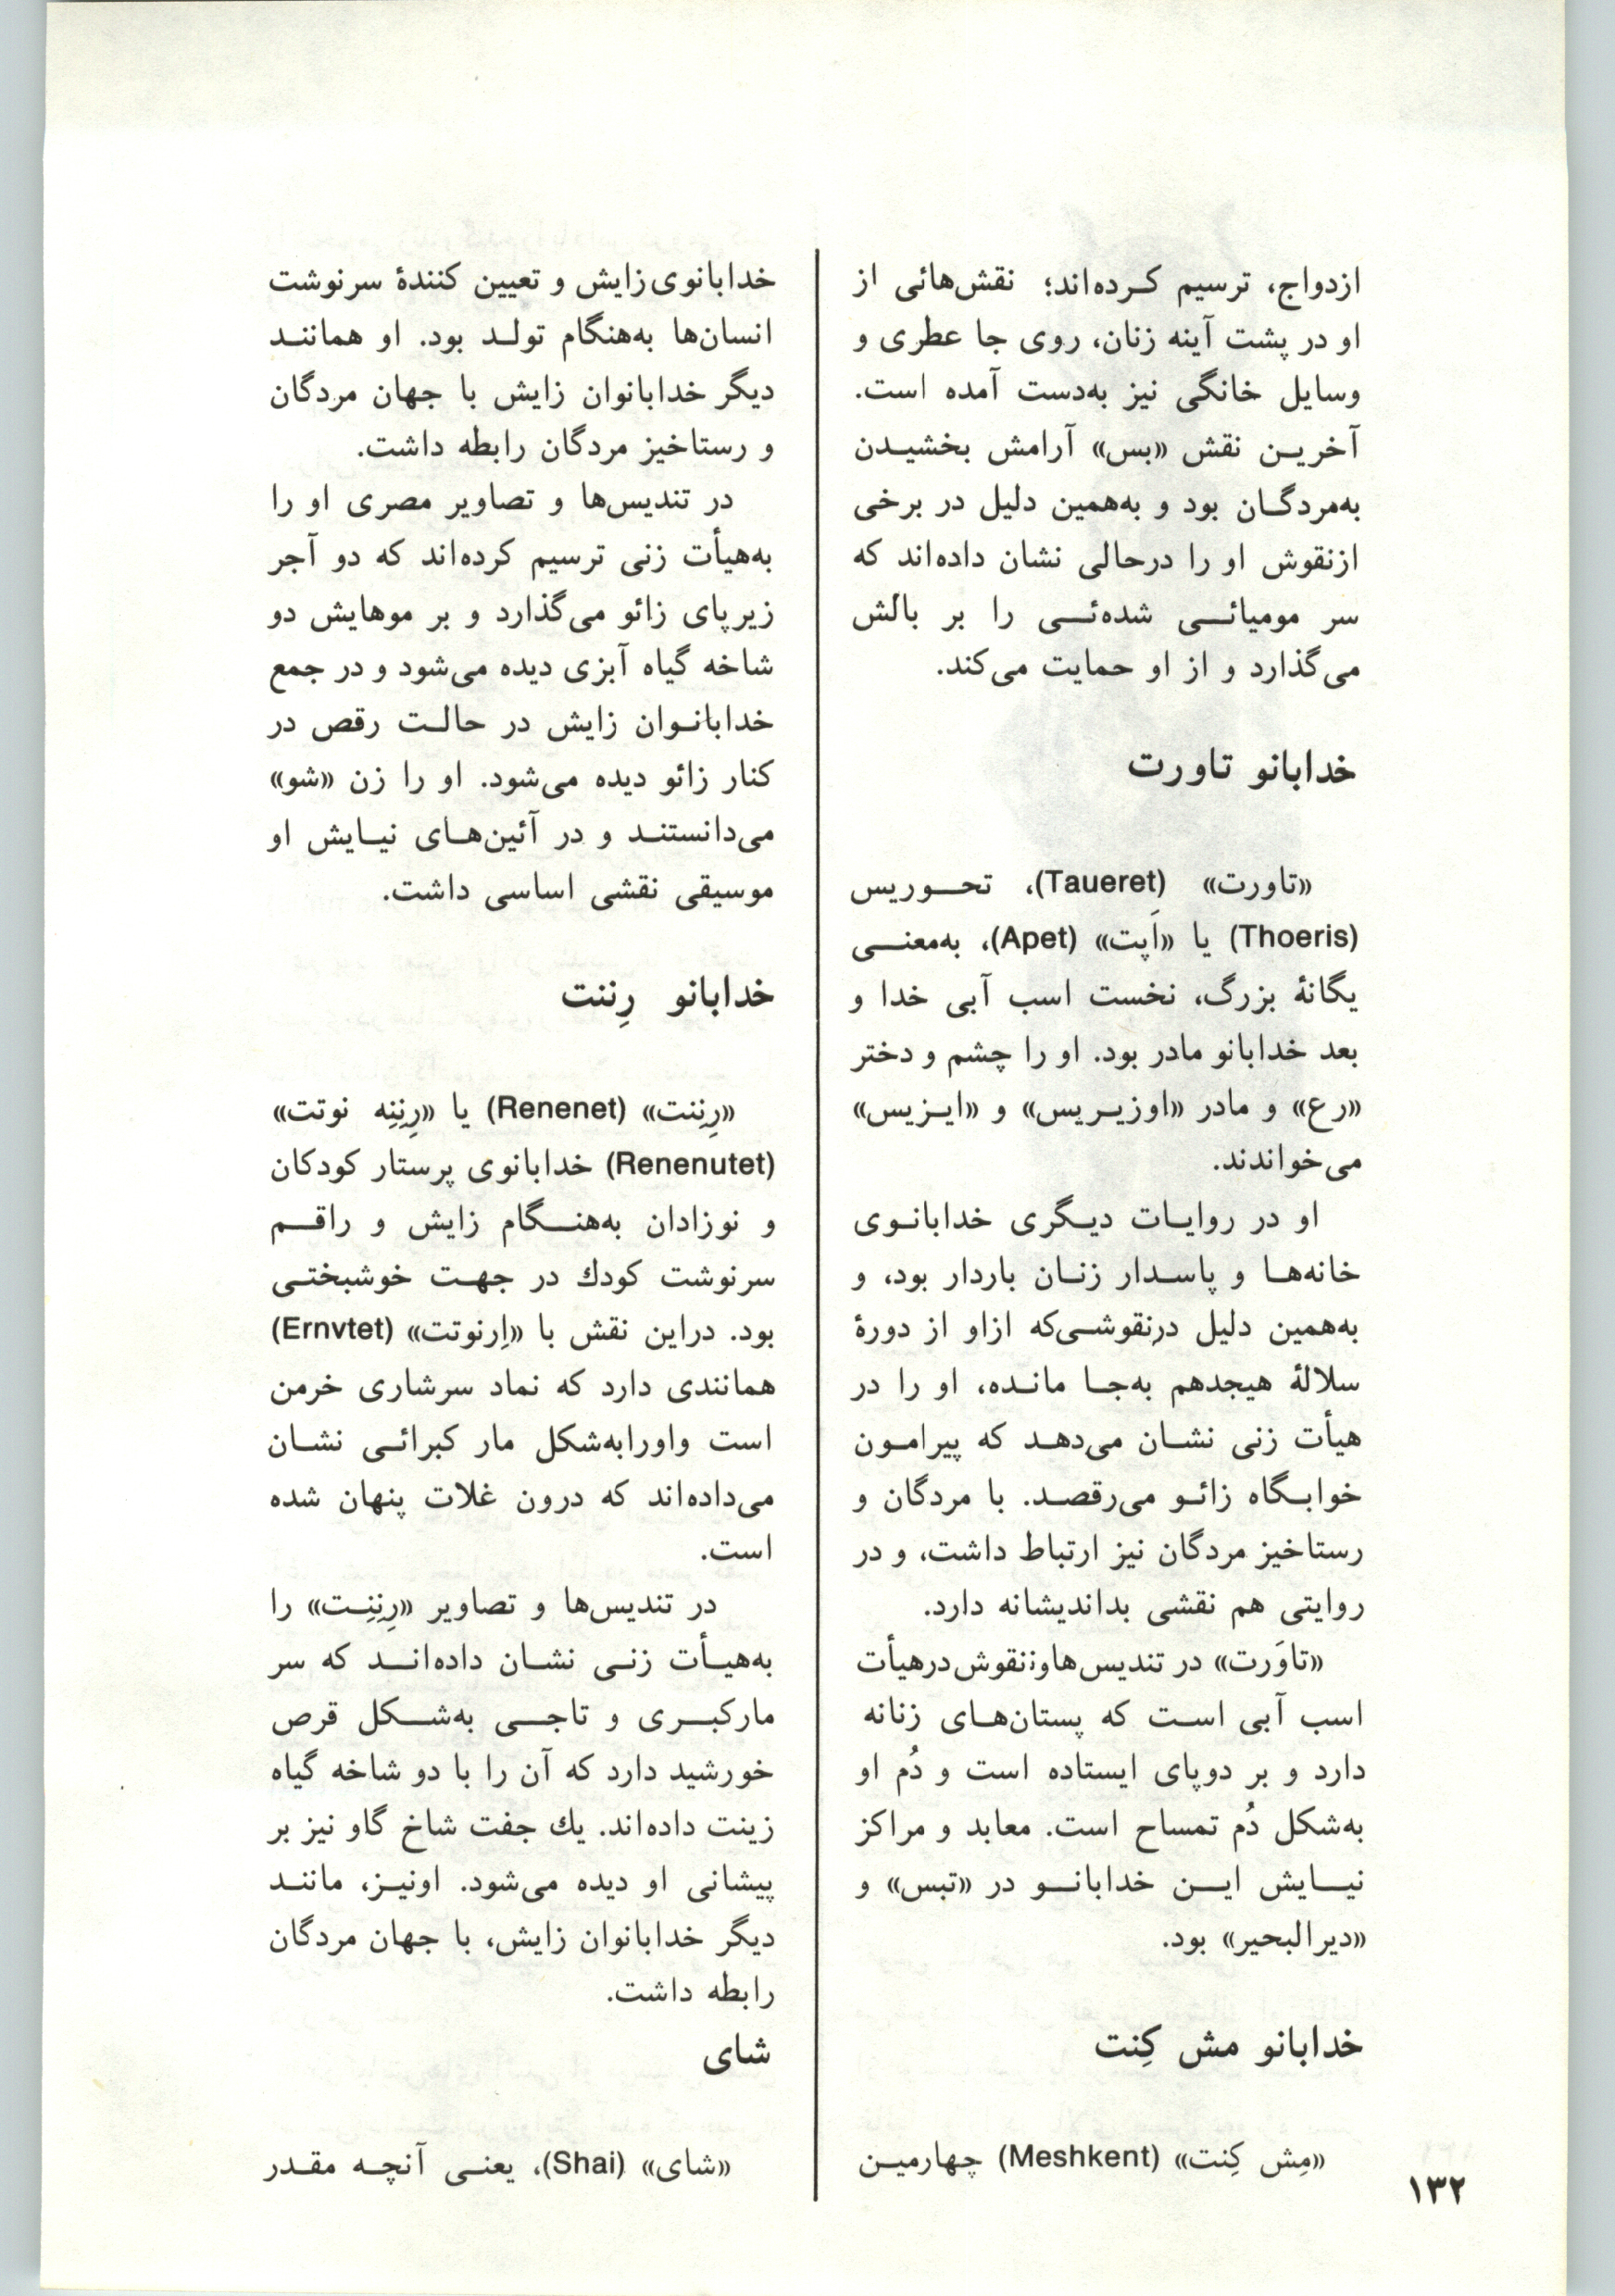 ازدواج، ترسیم کرده‌اند؛ نقش‌هائی از
او در پشت آینه زنان، روی جا عطری و
وسایل خانگی نیز به‌دست آمده است.
آخرین نقش «بس» آرامش بخشیدن
به‌مردگان بود و به‌همین دلیل در برخی
ازنقوش او را درحالی نشان داده‌اند که
سر مومیائی شده‌ئی را بر بالش
می‌گذارد و از او حمایت می‌کند.
خدابانو تاورت
«تاورت» (Taueret)، تحوریس
(Thoeris) یا «اَپت» (Apet)، به‌معنی
یگانهٔ بزرگ، نخست اسب آبی خدا و
بعد خدابانو مادر بود. او را چشم و دختر
«رع» و مادر «اوزیریس» و «ایزیس»
می‌خواندند.
او در روایات دیگری خدابانوی
خانه‌ها و پاسدار زنان باردار بود، و
به‌همین دلیل درنقوشی‌که ازاو از دورهٔ
سلالهٔ هیجدهم به‌جا مانده، او را در
هیأت زنی نشان می‌دهد که پیرامون
خوابگاه زائو می‌رقصد. با مردگان و
رستاخیز مردگان نیز ارتباط داشت، و در
روایتی هم نقشی بداندیشانه دارد.
«تاوَرت» در تندیس‌هاونقوش درهیأت
اسب آبی است که پستان‌های زنانه
دارد و بر دوپای ایستاده است و دُم او
به‌شکل دُم تمساح است. معابد و مراکز
نیایش این خدابانو در «تبس» و
«دیرالبحیر» بود.
خدابانو مش کِنت
«مِش کِنت» (Meshkent) چهارمین
خدابانوی زایش و تعیین کنندهٔ سرنوشت
انسان‌ها به‌هنگام تولد بود. او همانند
دیگر خدابانوان زایش با جهان مردگان
و رستاخیز مردگان رابطه داشت.
در تندیس‌ها و تصاویر مصری او را
به‌هیأت زنی ترسیم کرده‌اند که دو آجر
زیرپای زائو می‌گذارد و بر موهایش دو
شاخه گیاه آبزی دیده می‌شود و در جمع
خدابانوان زایش در حالت رقص در
کنار زائو دیده می‌شود. او را زن «شو»
می‌دانستند و در آئین‌های نیایش او
موسیقی نقشی اساسی داشت.
خدابانو رِننت
«رِنِنت» (Renenet) یا «رِنِنِه نوتت»
(Renenutet) خدابانوی پرستار کودکان
و نوزادان به‌هنگام زایش و راقم
سرنوشت کودك در جهت خوشبختی
بود. دراین نقش با «اِرنوتت» (Ernvtet)
همانندی دارد که نماد سرشاری خرمن
است واورابه‌شکل مار کبرائی نشان
می‌داده‌اند که درون غلات پنهان شده
است.
در تندیس‌ها و تصاویر «رِنِنِت» را
به‌هیأت زنی نشان داده‌اند که سر
مارکبری و تاجی به‌شکل قرص
خورشید دارد که آن را با دو شاخه گیاه
زینت داده‌اند. یك جفت شاخ گاو نیز بر
پیشانی او دیده می‌شود. اونیز، مانند
دیگر خدابانوان زایش، با جهان مردگان
رابطه داشت.
شای
«شای» (Shai)، یعنی آنچه مقدر
۱۳۲